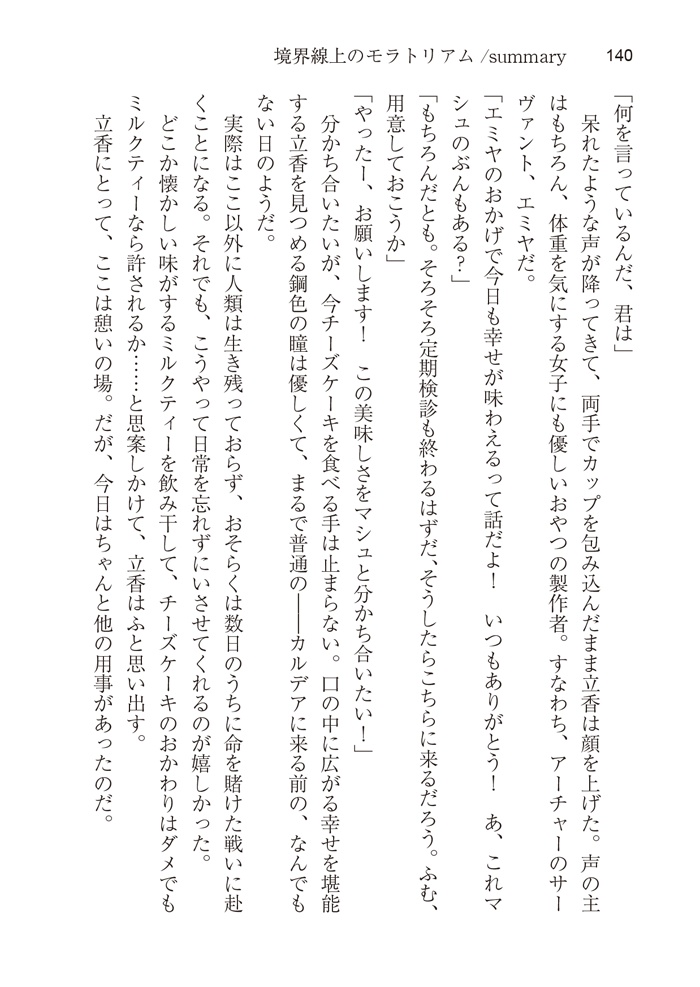 境界線上のモラトリアム /summary 140
「何を言っているんだ、君は」
　呆れたような声が降ってきて、両手でカップを包み込んだまま立香は顔を上げた。声の主
はもちろん、体重を気にする女子にも優しいおやつの製作者。すなわち、アーチャーのサー
ヴァント、エミヤだ。
「エミヤのおかげで今日も幸せが味わえるって話だよ！　いつもありがとう！　あ、これマ
シュのぶんもある？」
「もちろんだとも。そろそろ定期検診も終わるはずだ、そうしたらこちらに来るだろう。ふむ、
用意しておこうか」
「やったー、お願いします！　この美味しさをマシュと分かち合いたい！」
　分かち合いたいが、今チーズケーキを食べる手は止まらない。口の中に広がる幸せを堪能
する立香を見つめる鋼色の瞳は優しくて、まるで普通の――カルデアに来る前の、なんでも
ない日のようだ。
　実際はここ以外に人類は生き残っておらず、おそらくは数日のうちに命を賭けた戦いに赴
くことになる。それでも、こうやって日常を忘れずにいさせてくれるのが嬉しかった。
　どこか懐かしい味がするミルクティーを飲み干して、チーズケーキのおかわりはダメでも
ミルクティーなら許されるか……と思案しかけて、立香はふと思い出す。
　立香にとって、ここは憩いの場。だが、今日はちゃんと他の用事があったのだ。